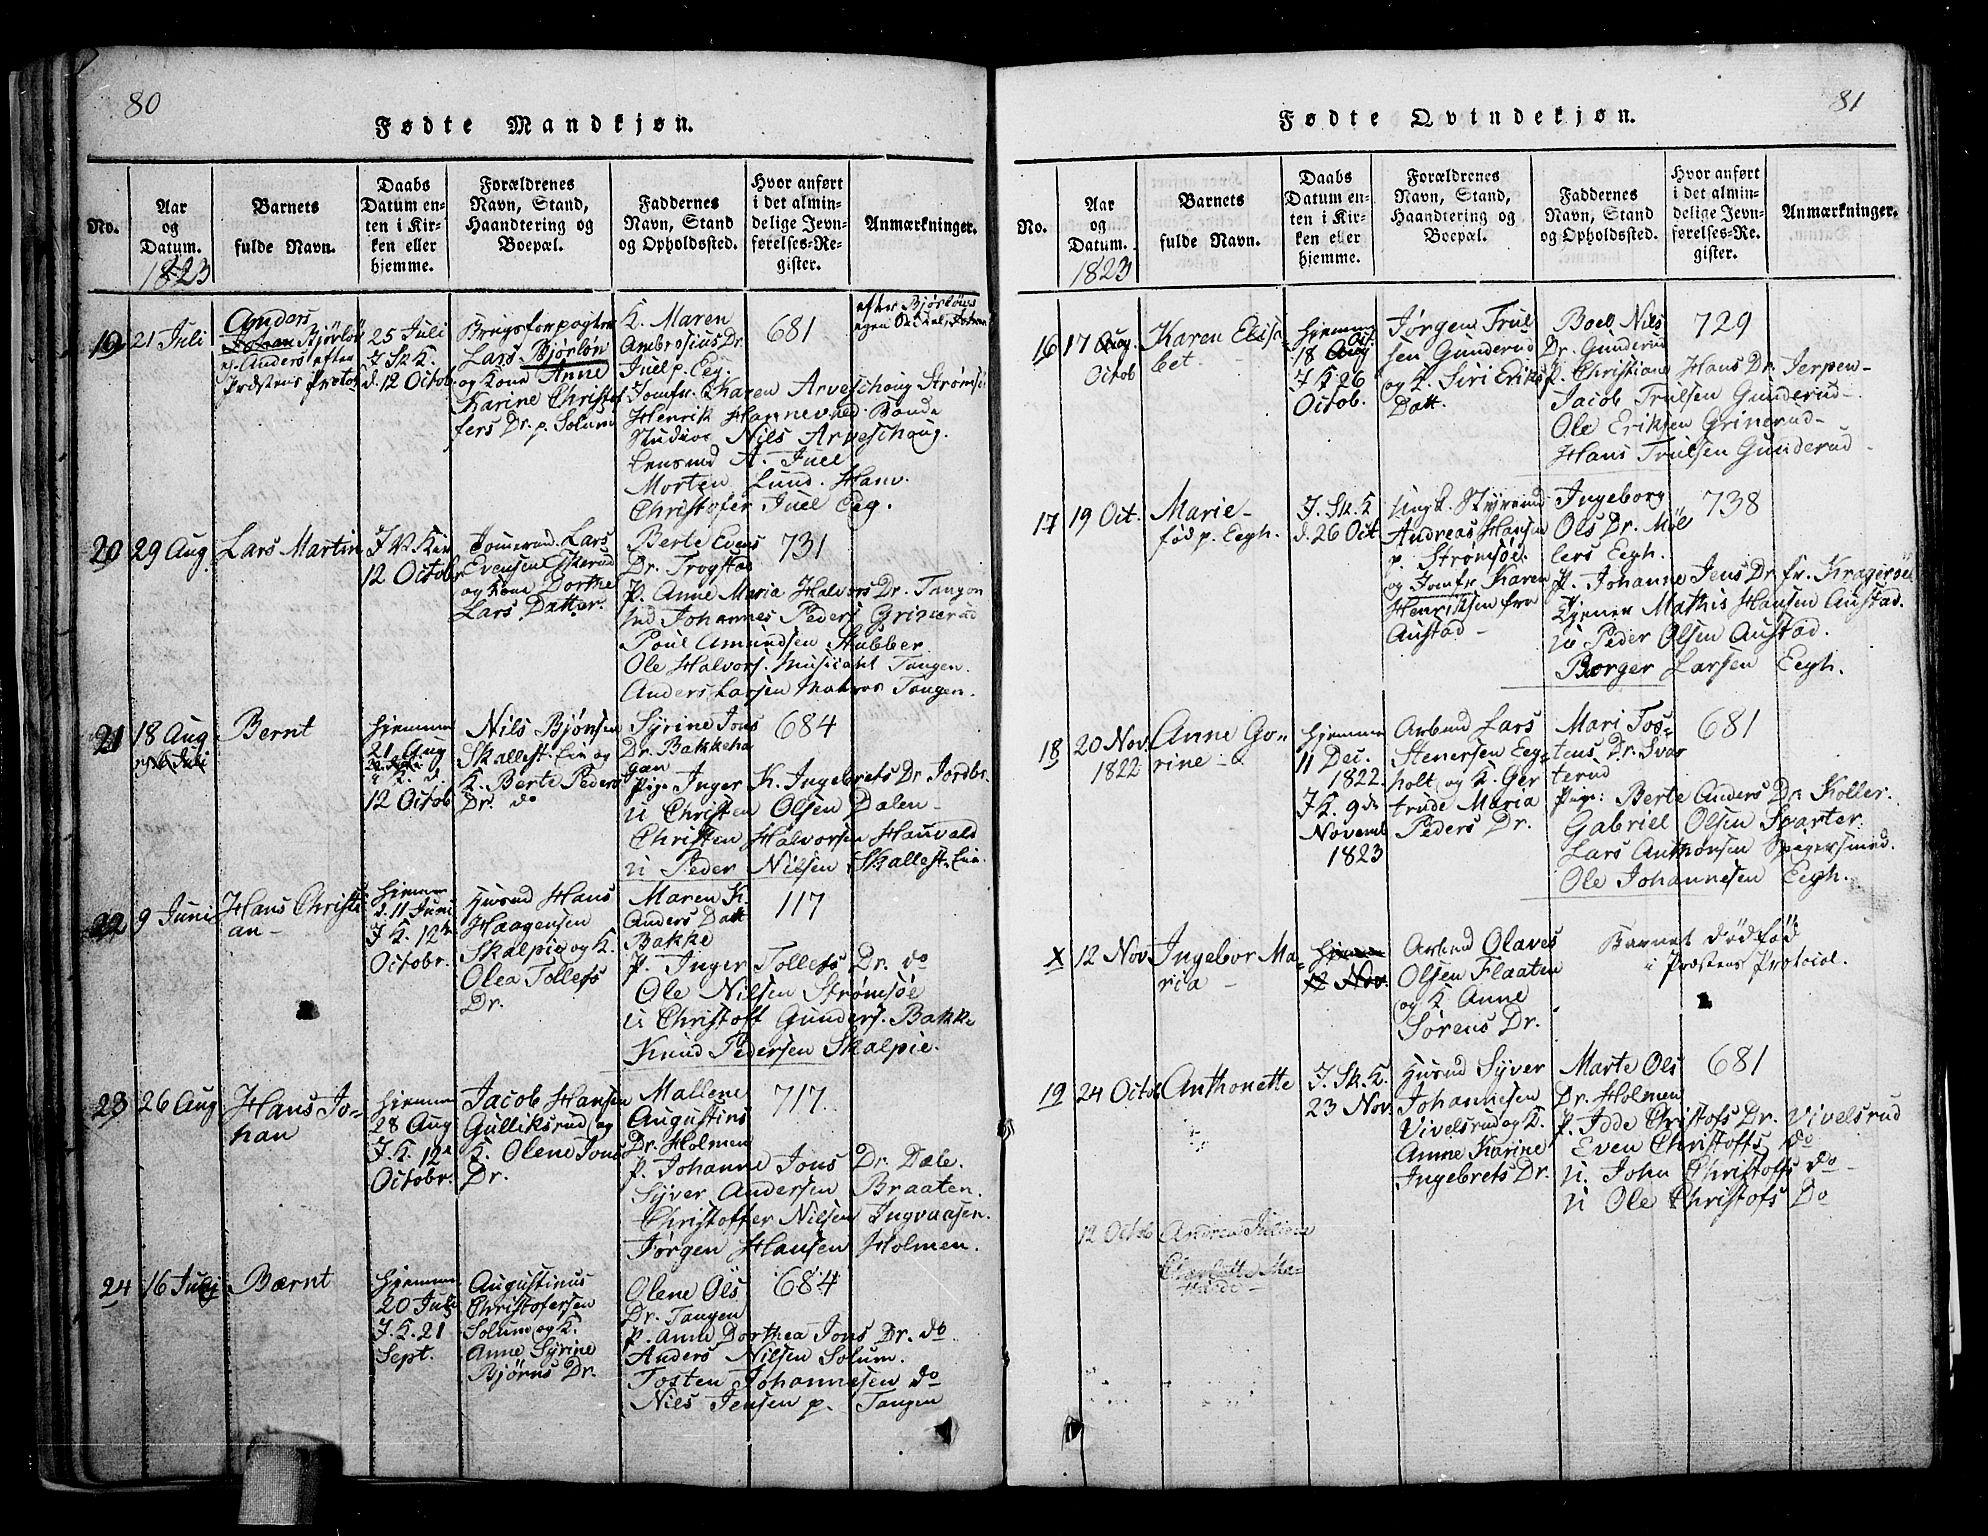 80
Fødte Mandkjøn.
No.
Aar
og
Datum.
1823
Barnets
fulde Navn.
Daabs
Datum en-
ten i Kir-
ken eller
hjemme.
Forældrenes
Navn, Stand,
Haandtering og
Boepæl.
Faddernes
Navn, Stand
og Opholdssted.
Hvor anført
i det almin-
delige Jevn-
førelses-Re-
gister.
Anmærkninger.
19
21 Juli
Anders
Johan Bjørløv
Anders efter
Præstens Protoc
25 Juli
J Sk K
d. 12 Octob
Lars Bjørløn
og Kone Anne
Karine Christof
fers Dr. p. Solum
K. Maren
Ambrosius Dr.
Juel p. Eeg.
Jomfr. Karen Arveschoug Strømsö
Henrik Hannevhed Bonde
Nils Arveschoug.
A. Juel
Morten Lund. Hanv.
Christofer Juel Eeg.
681
efter Bjørløns
20
29 Aug
Lars Martin
12 Octobr
Lars
Evensen Eskerud
og Kone Dorthe
Lars Datter.
Berte Evens
Dr. Trogstad
P. Anne Maria Halvors Dr. Tangen
Johannes Peders Grinerud
Poul Amundsen Stubber
Ole Halvors. Musicant Tangen.
Anders Larsen Matros Tangen.
731
21
18 Aug
Bernt
hjemme
21 Aug
12 Octob
Nils Bjønsen
Skallest. Eie og
K. Berte Peders
Dr. do
Syrine Jons
Dr. Bakkeha
gen
Pig. Inger K. Ingebrets Dr Jordbr.
U Christen Olsen Dalen
Christen Halvorsen Hauvald
U Peder Nilsen Skallest. Eie.
684
22
9 Juni
Hans Christi
an
hjemme
d. 11 Juni
J K. 12te
Octobr.
Husmd Hans
Haagensen
Skalpie og K.
Olea Tollefs
Dr.
Maren K.
Anders Datt
Bakke
P. Inger Tollefs Dr. do
Ole Nilsen Strømsöe
U Christoff Gunders. Bakke
Knud Pedersen Skalpie.
117
23
26 Aug
Hans Jo-
han
hjemme
28 Aug
J. K. 12te
Octobr.
Jacob Hansen
Gulliksrud og
K. Olene Jons
Dr.
Mallene
Augustins
Dr. Holmen
P. Johanne Jons Dr. Dale.
Syver Andersen Braaten.
Christoffer Nilsen Ingvaasen.
Jørgen Hansen Holmen.
717
24
16 Julij
Bærnt
hjemme
20 Juli
J. K. 21
Sept.
Augustinus
Christofersen
Solum og K.
Anne Syrine
Bjørns Dr.
Olene Ols
Dr. Tangen
P. Anne Dorthea Jons Dr. do
Anders Nilsen Solum.
Tosten Johannesen do
Nils Jensen p. Tangen
684
81
Fødte Qvindekjøn.
No.
Aar
og
Datum.
1823
Barnets
fulde Navn.
Daabs
Datum en-
ten i Kir-
ken eller
hjemme.
Forældrenes
Navn, Stand,
Haandtering og
Boepæl.
Faddernes
Navn, Stand
og Opholdssted.
Hvor anført
i det almin-
delige Jevn-
førelses-Re-
gister.
Anmærkninger.
16
17 Aug.
Octob
Karen Elisa
bet
hjemme
18 Aug Oct.
J K 26
Octob.
Jørgen Trul
sen Gunderud
og K. Siri Eriks
Datt.
Boel Nils
Dr. Gunderud
P. Christiane Hans Dr. Jerpen-
Jacob Trulsen Gunderud
Ole Eriksen Grinerud
Hans Trulsen Gunderud
729
17
19 Oct.
Marie
fød p. Eegh.
J. Sk. K
d. 26 Oct
Ungk. Styrmd
Andreas Hansen
p. Strømsöe.
og Jomfr Karen
Henriksen fra
Austad
Ingeborg
Ols Dr. Møl
lers Eegh.
P. Johanne Jens Dr fr. Kragerøe
Tjener Mathis Hansen Austad.
U Peder Olsen Austad.
Borger Larsen Eegh.
738
18
20 Nov.
1822
Anne Go-
rine
hjemme
11 Dec.
1822.
J K. 9de
Novemb
1823
Arbmd Lars
Stenersen Eeg-
holt og K. Ger
trude Maria
Peders Dr.
Mari Tos-
tens Dr. Svar
terud
Pige: Berte Anders Dr. Koller.
Gabriel Olsen Svarter.
Lars Anthonsen Spigersmed.
Ole Johannesen Eegh.
681
X
12 Nov
Ingebor Ma-
ria
hjemme
12 Nov.
Arbmd Olaves
Olsen Flaaten
og K Anne
Sørens Dr.
Barnet dödföd
i Præstens Protocol.
19
24 Octob
Anthonette
J. Sk. K.
23 Nov.
Husmd Syver
Johannesen
Vivelsrud og K.
Anne Karine
Ingebrets Dr.
Marte Ols
Dr. Holmen
P. Idde Christofs Dr. Vivelsrud
Even Christoffs do
U. John Christoffs do
U Ole Christofs Do
681
12 Octob
Andrea Juliane
Charlotte Ma-
thilde